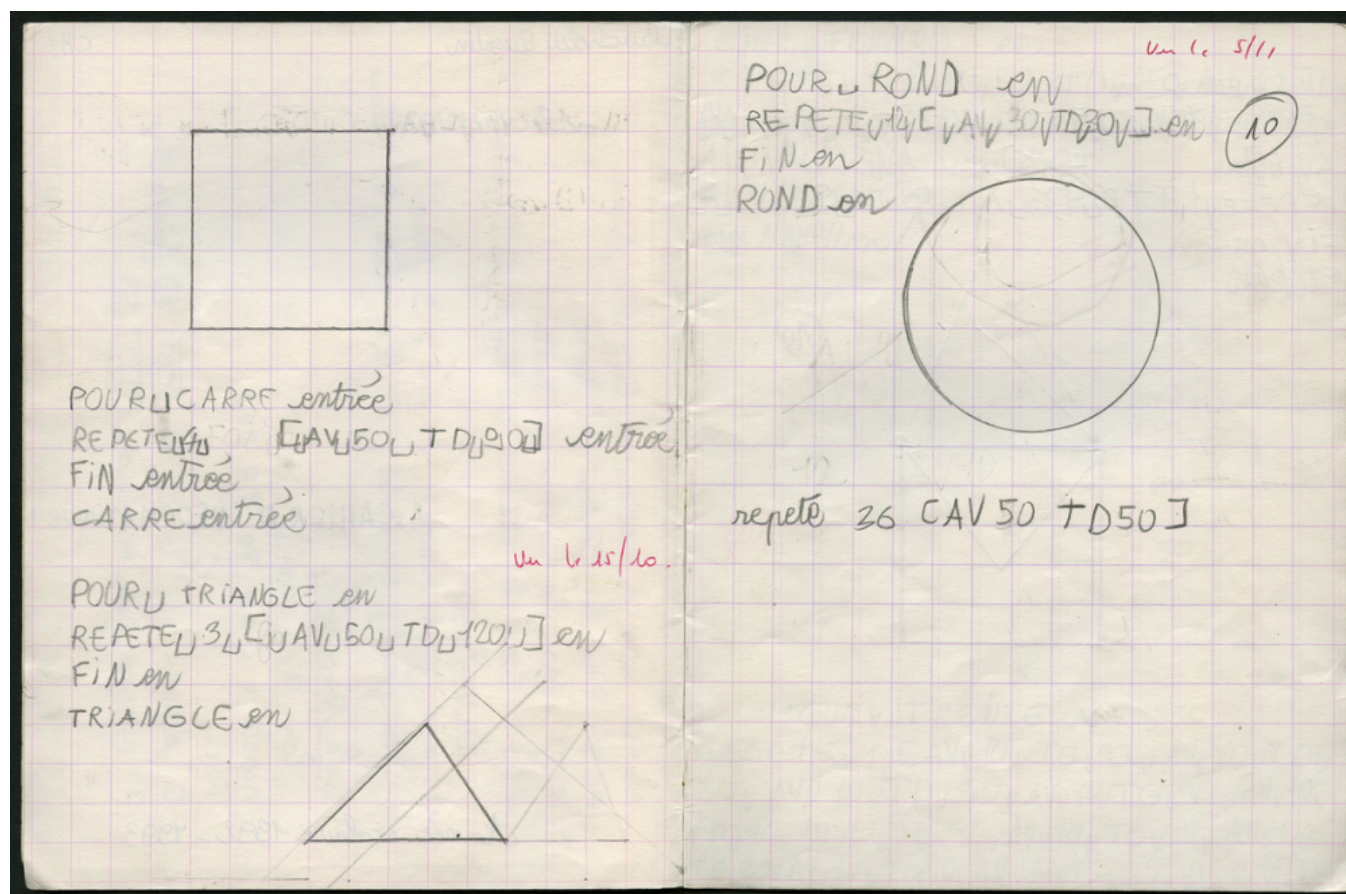 POUR␣CARRE entrée
REPETE␣4␣ [␣AV␣50␣ TD␣90␣] entrée
FiN entrée
CARRE entrée
Vu le 15/10.
POUR␣ TRiANGLE en
REPETE␣3␣[␣AV␣50␣TD␣120␣] en
FiN en
TRiANGLE en
Vu le 5/11
POUR␣ROND en
REPETE␣ ␣[␣AV␣30␣TD␣30␣] en
10
FiN en
ROND en
repeté 36 [AV 50 TD50]